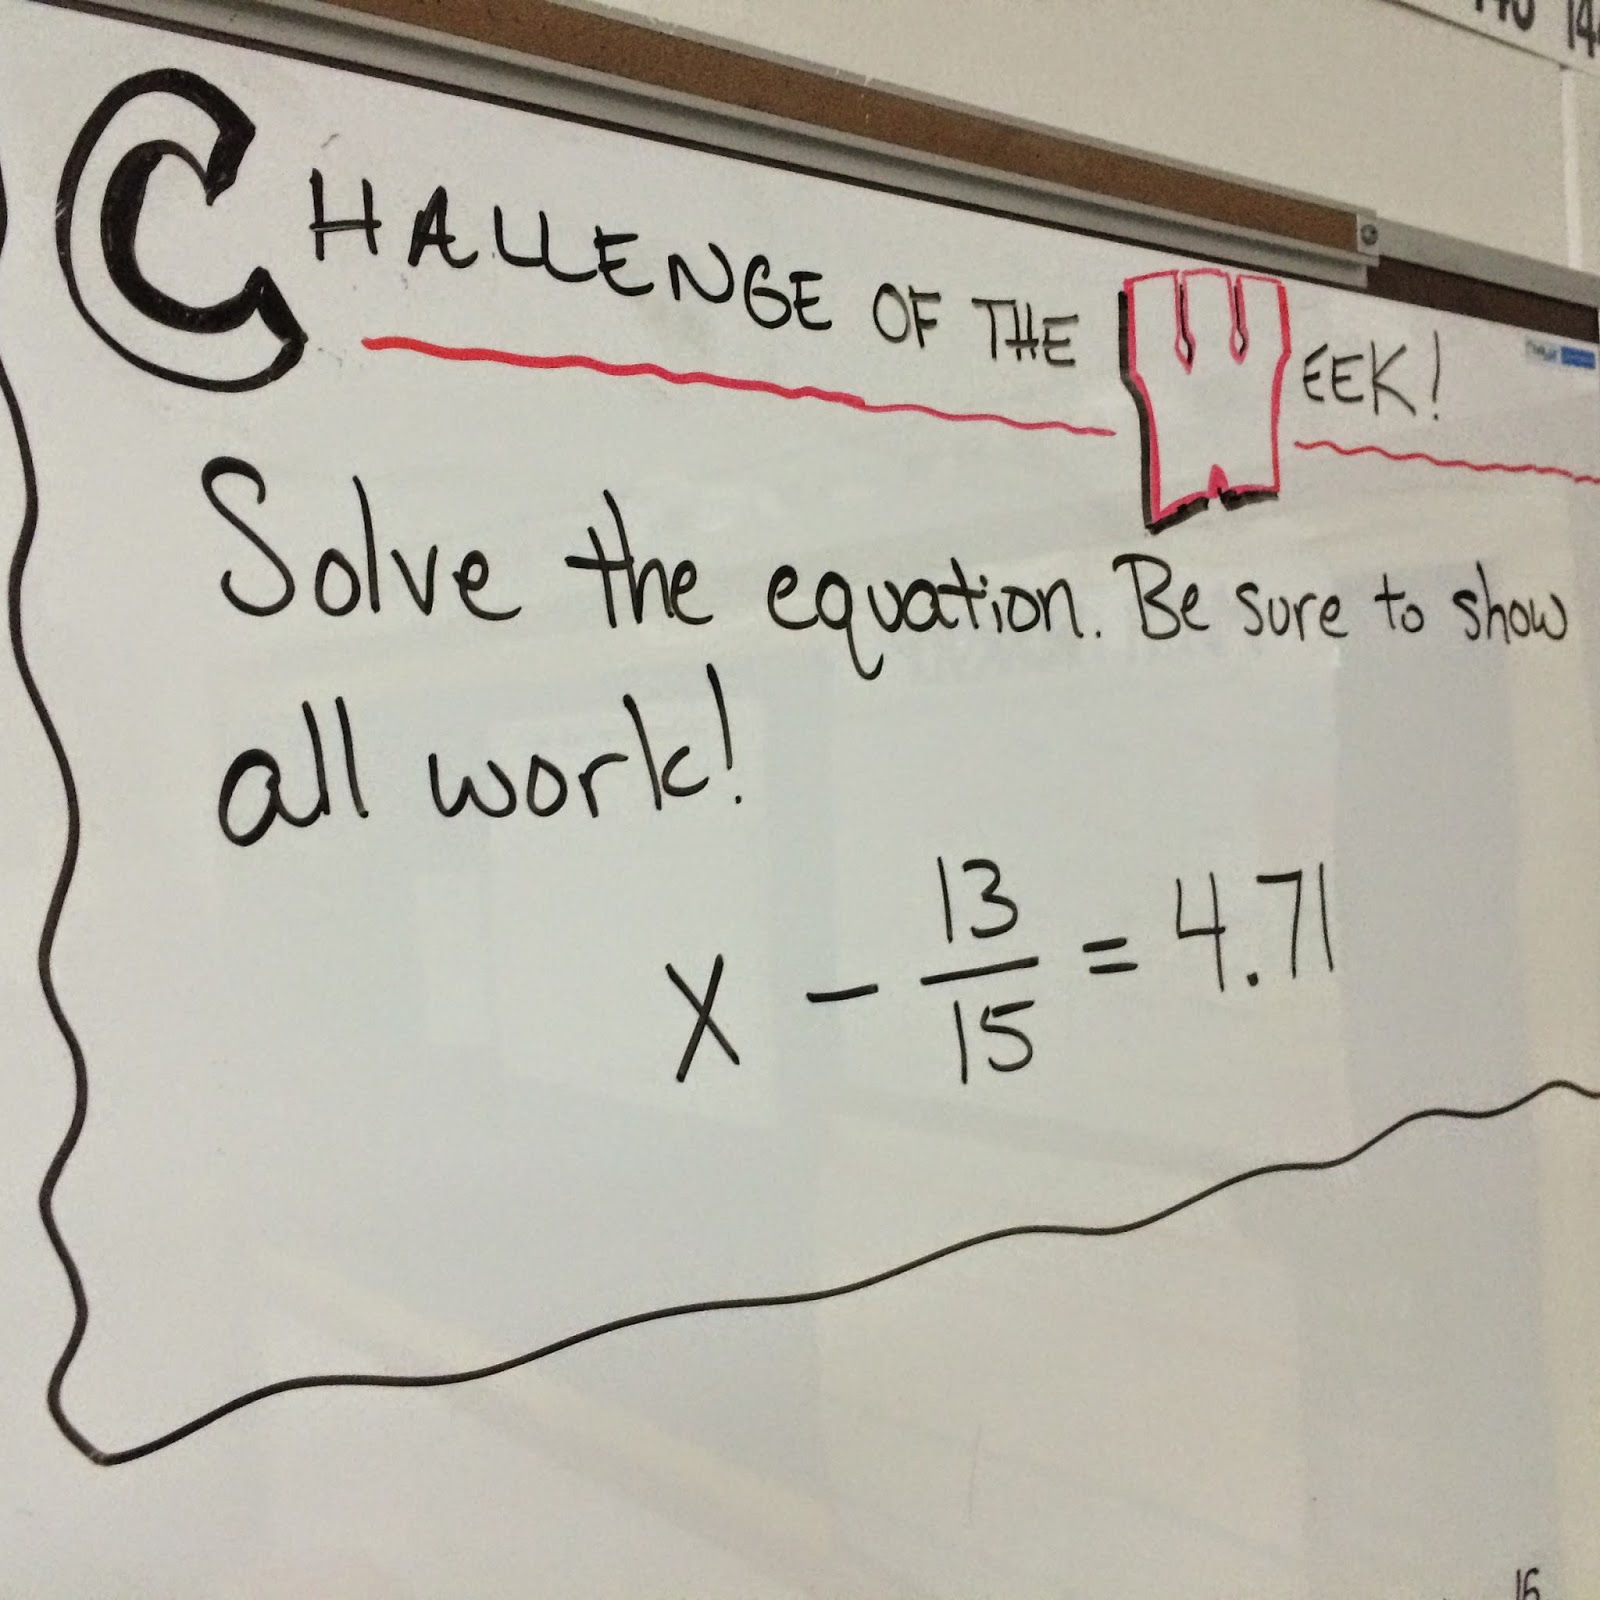 CHALLENGE OF THE WEEK!
Solve the equation. Be sure to show
all work!
x - 13/15 = 4.71